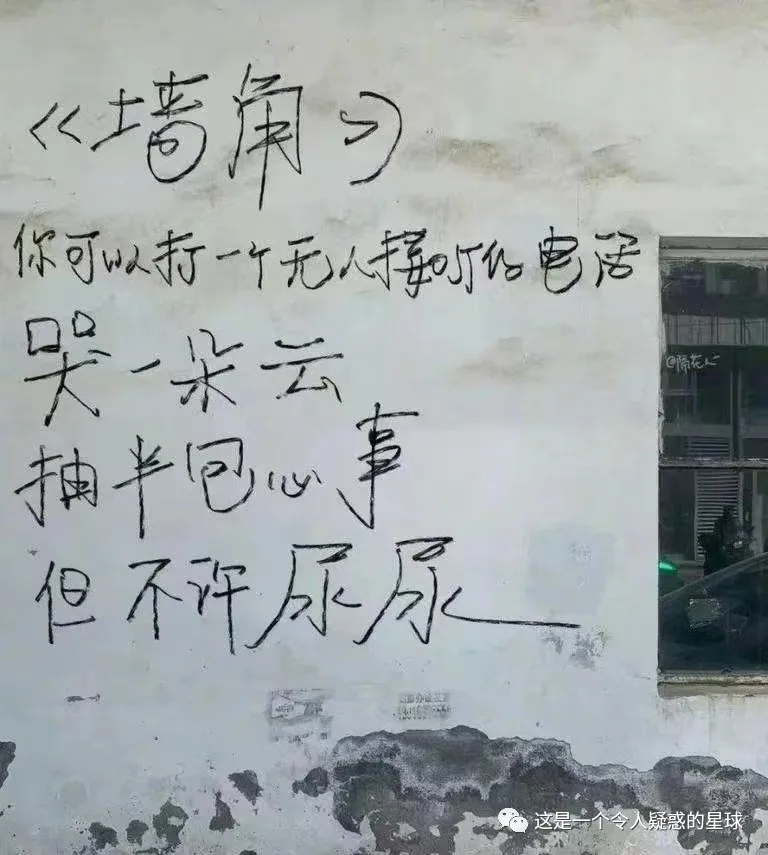 《墙角》
你可以打一个无人接听的电话
哭一朵云
抽半包心事
但不许尿尿
@隔花人
这是一个令人疑惑的星球